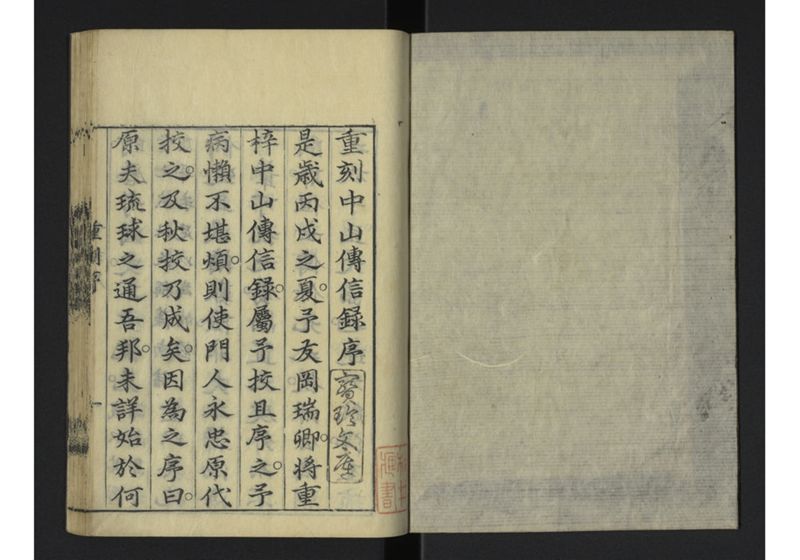 重刻中山傳信錄序
寳玲文庫
是歲丙戌之夏。予友岡瑞卿。將重
梓中山傳信錄。屬予挍且序之。予
病懶不堪煩。則使門人永忠原代
挍之。及秋挍乃成矣。因為之序曰。
原夫琉球之通吾邦。未詳始於何
重刻序
一